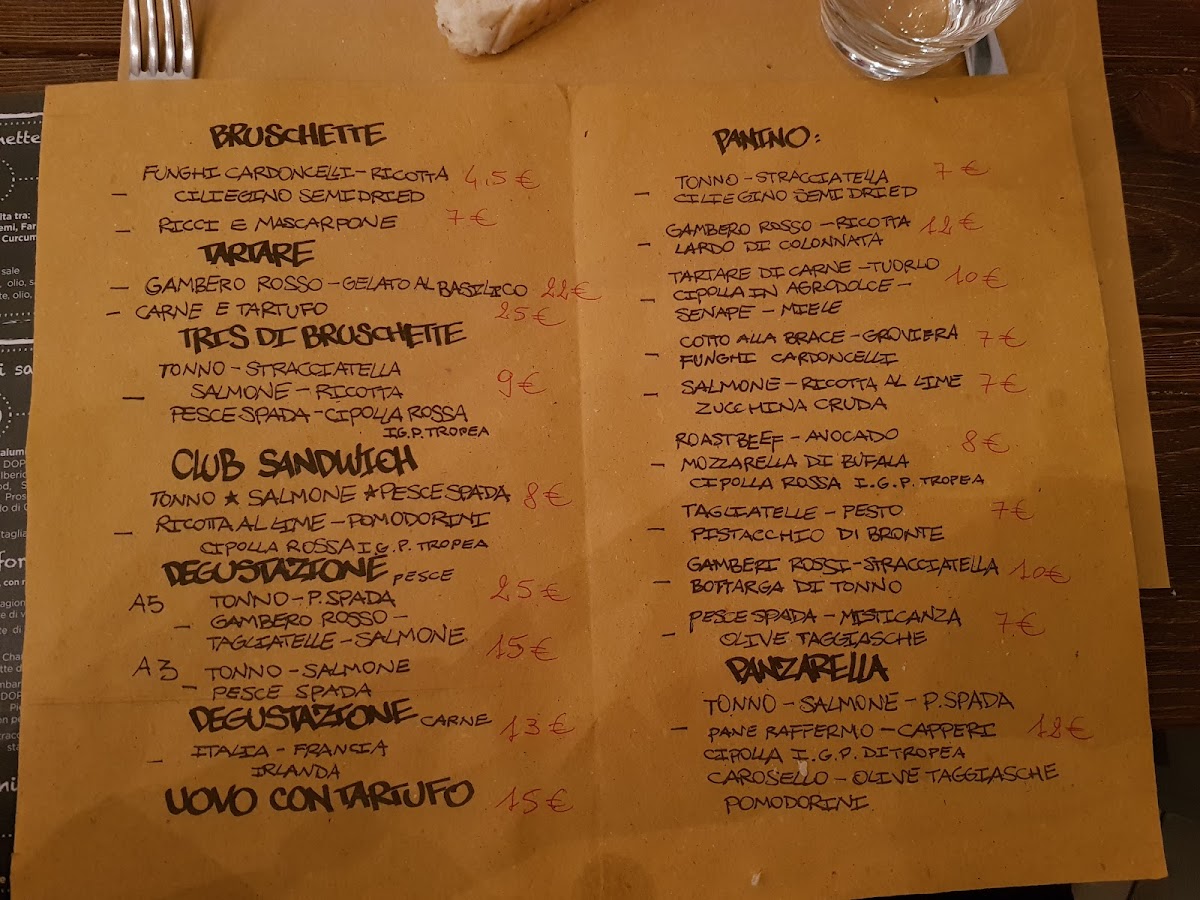 BRUSCHETTE
FUNGHI CARDONCELLI-RICOTTA 4,5 €
- CILIEGINO SEMIDRIED
- RICCI E MASCARPONE 7 €
TARTARE
- GAMBERO ROSSO-GELATO AL BASILICO 22 €
- CARNE E TARTUFO 25 €
TRIS DI BRUSCHETTE
TONNO-STRACCIATELLA
- SALMONE-RICOTTA 9 €
PESCE SPADA-CIPOLLA ROSSA
I.G.P. TROPEA
CLUB SANDWICH
TONNO ★ SALMONE ★ PESCE SPADA 8 €
- RICOTTA AL LIME-POMODORINI
CIPOLLA ROSSA I.G.P. TROPEA
DEGUSTAZIONE PESCE
A5 TONNO-P.SPADA 25 €
- GAMBERO ROSSO-
TAGLIATELLE-SALMONE 15 €
A3 TONNO-SALMONE
- PESCE SPADA
DEGUSTAZIONE CARNE 13 €
- ITALIA-FRANCIA
IRLANDA
UOVO CON TARTUFO 15 €
PANINO:
TONNO-STRACCIATELLA 7 €
- CILIEGINO SEMI DRIED
GAMBERO ROSSO-RICOTTA 12 €
- LARDO DI COLONNATA
TARTARE DI CARNE-TUORLO 10 €
- CIPOLLA IN AGRODOLCE-
SENAPE-MIELE
COTTO ALLA BRACE-GROVIERA 7 €
- FUNGHI CARDONCELLI
- SALMONE-RICOTTA AL LIME 7 €
ZUCCHINA CRUDA
ROASTBEEF-AVOCADO 8 €
- MOZZARELLA DI BUFALA
CIPOLLA ROSSA I.G.P. TROPEA
TAGLIATELLE-PESTO 7 €
- PISTACCHIO DI BRONTE
GAMBERI ROSSI-STRACCIATELLA 10 €
- BOTTARGA DI TONNO
PESCE SPADA-MISTICANZA 7 €
- OLIVE TAGGIASCHE
PANZARELLA
TONNO-SALMONE-P.SPADA
- PANE RAFFERMO-CAPPERI 18 €
CIPOLLA I.G.P. DI TROPEA
CAROSELLO-OLIVE TAGGIASCHE
POMODORINI